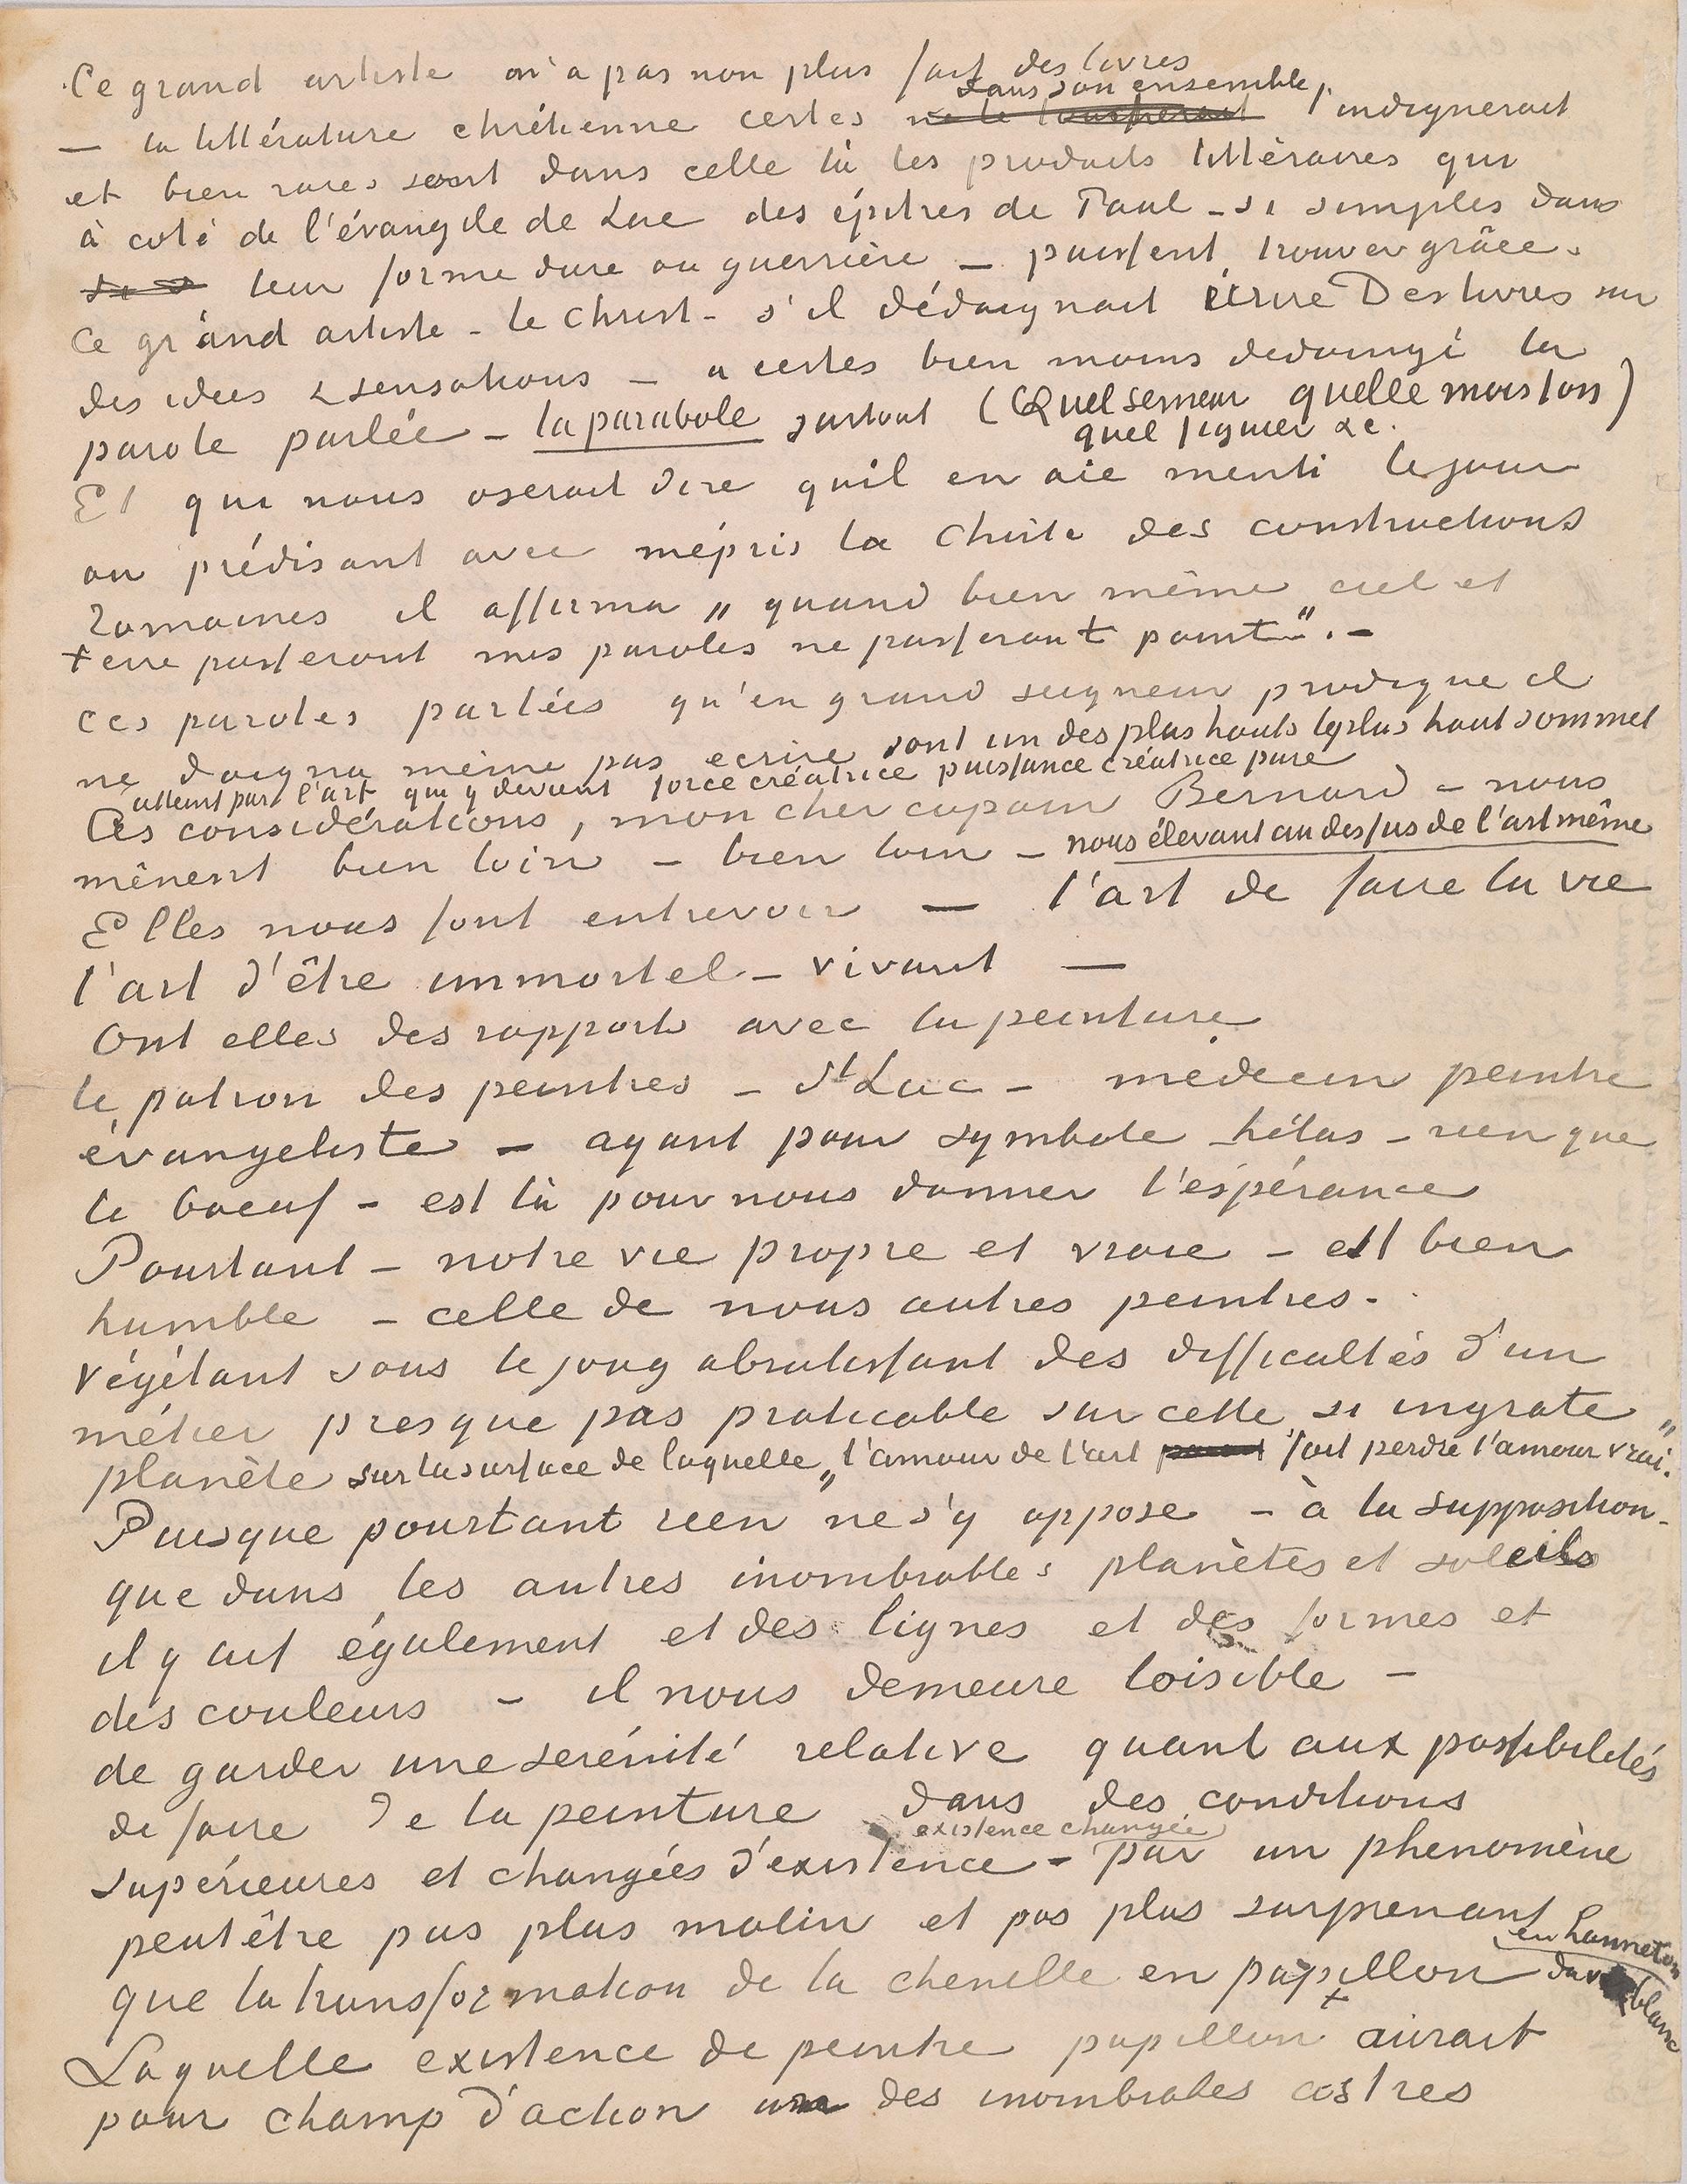 Ce grand artiste n'a pas non plus fait des livres
dans son ensemble,
— la littérature chrétienne certes l'indignerait
et bien rares sont dans celle là les produits littéraires qui
à coté de l'évangile de Luc des épitres de Paul – si simples dans
leur forme dure ou guerrière – puissent trouver grâce.
Ce grand artiste – le Christ – s'il dédaignait écrire Des livres sur
des idées & sensations – a certes bien moins dedaigné la
parole parlée – la parabole surtout (Quel semeur quelle moisson)
quel figuier &c.
Et qui nous oserait dire quil en aie menti le jour
ou prédisant avec mépris la chûte des constructions
romaines il affirma „quand bien même ciel et
terre passeront mes paroles ne passeront point". –
ces paroles parlées qu'en grand seigneur prodigue il
ne daigna même pas ecrire sont un des plus hauts le plus haut sommet
atteint par l'art qui y devient force créatrice puissance créatrice pure
Ces considérations, mon cher copain Bernard – nous
mênent bien loin – bien loin – nous élevant au dessus de l'art même
Elles nous font entrevoir — l'art de faire la vie
l'art d'être immortel – vivant —
Ont elles des rapports avec la peinture
le patron des peintres – St Luc – médecin peintre
évangeliste – ayant pour symbole hélas – rien que
le boeuf – est là pour nous donner l'espérance
Pourtant – notre vie propre et vraie – est bien
humble – celle de nous autres peintres.
végétant sous le joug abrutissant des difficultés d'un
métier presque pas praticable sur cette si ingrate „
planète sur la surface de laquelle „l'amour de l'art fait perdre l'amour vrai.
Puisque pourtant rien ne s'y oppose – à la supposition –
que dans les autres inombrables planètes et soleils
il y ait également et des lignes et des formes et
des couleurs – il nous demeure loisible –
de garder une serénité relative quant aux possibilités
de faire de la peinture dans des conditions
existence changée
supérieures et changées d'existence – par un phenomène
peutêtre pas plus malin et pas plus surprenant
en hanneton
que la transformation de la chenille en papillon du blanc
Laquelle existence de peintre papillon aurait
pour champ d'action des inombrables astres